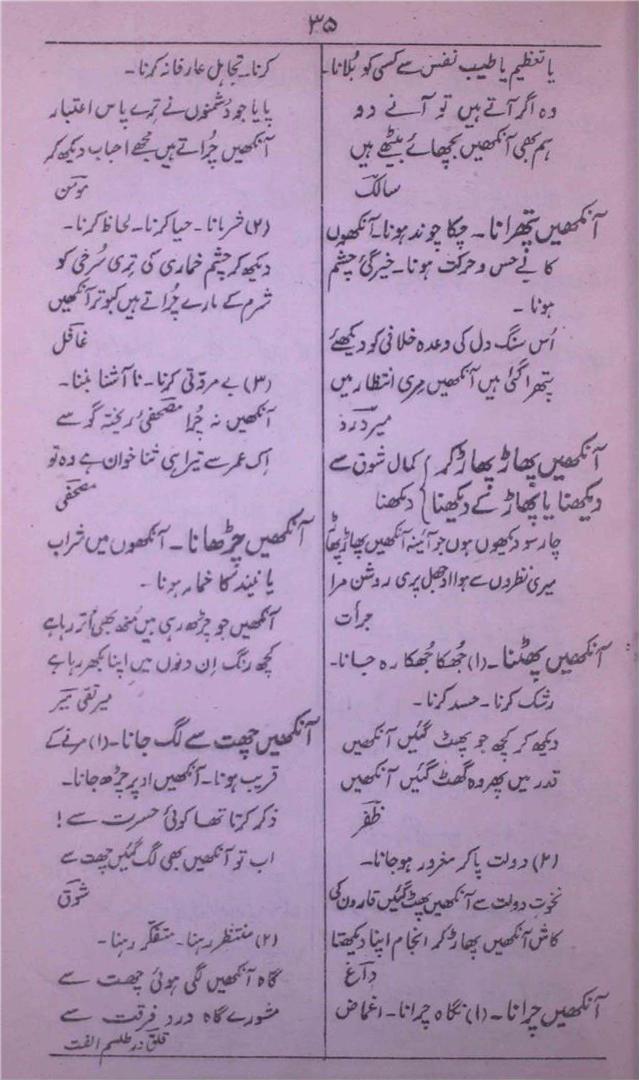 ۳۵
یا تعظیم یا طیب نفس سے کسی کو بُلانا۔
وہ اگر آتے ہیں تو آنے دو
ہم بھی آنکھیں بچھائے بیٹھے ہیں
سالک
آنکھیں پتھرانا۔ چکا چوند ہونا۔ آنکھوں
کا بے حس و حرکت ہونا۔ خیرگیٔ چشم
ہونا۔
اُس سنگ دل کی وعدہ خلافی کو دیکھئے
پتھرا گئی ہیں آنکھیں مری انتظار میں
میر درد
آنکھیں پھاڑ پھاڑ کر } کمال شوق سے
دیکھنا یا پھاڑ کے دیکھنا } دیکھنا
چار سو دیکھوں ہوں جو آئینہ آنکھیں پھاڑ پھاڑ
میری نظروں سے ہوا اوجھل پری روشن مرا
جرأت
آنکھیں پھٹنا۔ (۱) جُھکا جُھکا رہ جانا۔
رشک کرنا۔ حسد کرنا۔
دیکھ کر کچھ جو پھٹ گئیں آنکھیں
قدر میں پھر وہ گھٹ گئیں آنکھیں
ظفر
(۲) دولت پا کر مغرور ہو جانا۔
نخوت دولت سے آنکھیں پھٹ گئیں قارون کی
کاش آنکھیں پھاڑ کر انجام اپنا دیکھتا
داغ
آنکھیں چرانا۔ (۱) نگاہ چرانا۔ اغماض
کرنا۔ تجاہل عارفانہ کرنا۔
پایا جو دشمنوں نے ترے پاس اعتبار
آنکھیں چُراتے ہیں مجھے احباب دیکھ کر
مومن
(۲) شرمانا۔ حیا کرنا۔ لحاظ کرنا۔
دیکھ کر چشم خماری کی تری سُرخی کو
شرم کے مارے چُراتے ہیں کبوتر آنکھیں
غافل
(۳) بے مروّتی کرنا۔ نا آشنا بننا۔
آنکھیں نہ چُرا مصحفیٔ ریختہ گو سے
اِک عمر سے تیرا ہی ثنا خوان ہے وہ تو
مصحفی
آنکھیں چڑھانا۔ آنکھوں میں شراب
یا نیند کا خمار ہونا۔
آنکھیں جو چڑھ رہی ہیں مُنھ بھی اُتر رہا ہے
کچھ رنگ اِن دنوں میں اپنا بکھر رہا ہے
میر تقی میر
آنکھیں چھت سے لگ جانا۔ (۱) مرنے کے
قریب ہونا۔ آنکھیں اوپر چڑھ جانا۔
ذکر کرتا تھا کوئی حسرت سے!
اب تو آنکھیں بھی لگ گئیں چھت سے
شوق
(۲) منتظر رہنا۔ متفکّر رہنا۔
گاہ آنکھیں لگی ہوئی چھت سے
مشورے گاہ دردِ فرقت سے
قلق در طلسم الفت